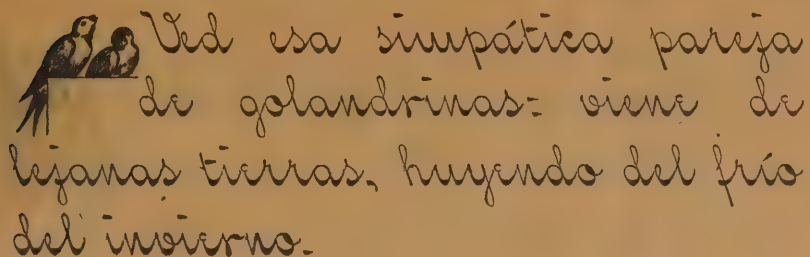 Ved esa simpática pareja
de golandrinas: viene de
lejanas tierras, huyendo del frío
del invierno.